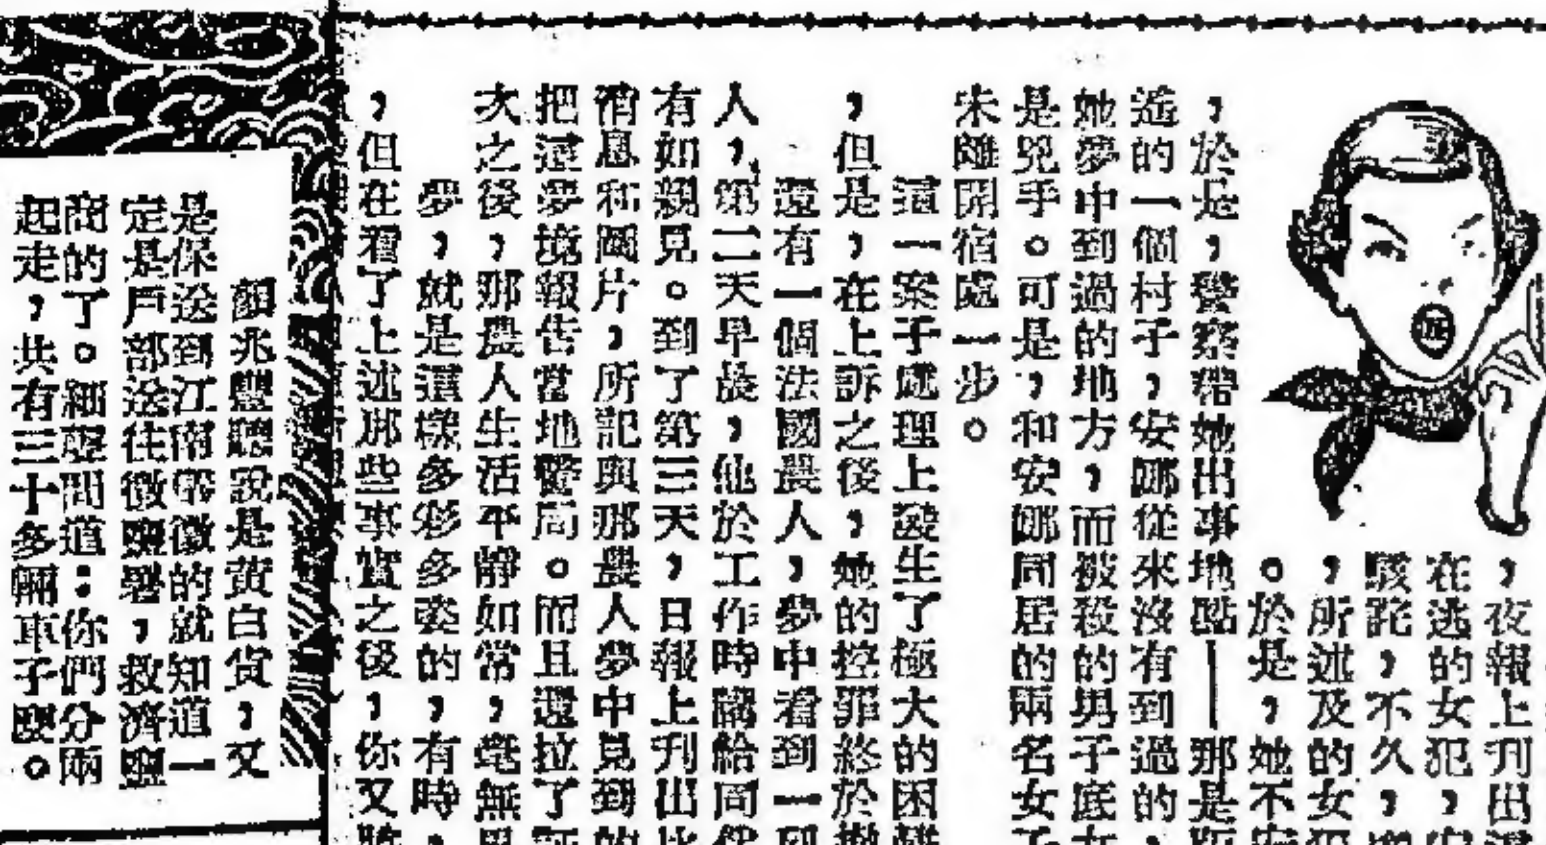 ，夜報上刊出
在逃的女犯，
駭詫，不久，
，所述及的女犯
。於是，她不
，於是，警察帶她出事地點——那是
遙的一個村子，安娜從來沒有到過的，
她夢中到過的地方，而被殺的男子底女
是兇手。可是，和安娜同居的兩名女子
未離開宿處一步。
這一案子處理上發生了極大的困難
，但是，在上訴之後，她的控罪終於撤
還有一個法國農人，夢中看到一
人，第二天早晨，他於工作時講給同伴
有如親見。到了第三天，日報上刊出比
消息和圖片，所記與那農人夢中見到的
把這夢境報告當地警局。而且還拉了
次之後，那農人生活平靜如常，毫無
夢，就是這樣多彩多姿的，有時，
，但在看了上述那些事實之後，你又
顏兆豐聽說是黃白貨，又
是保送到江南安徽的就知道一
定是戶部送往徵鹽署，救濟鹽
商的了。細聲問道：你們分兩
起走，共有三十多輛車子麼。